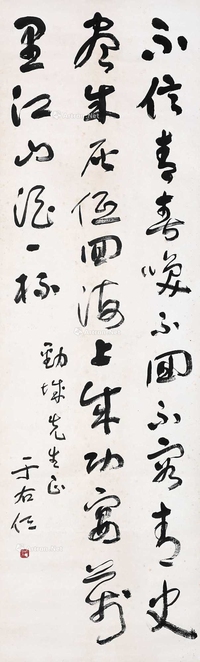 不信青春喚不回不容青史
盡成灰低回海上成功宴萬
里江山酒一杯
勁城先生正
于右任